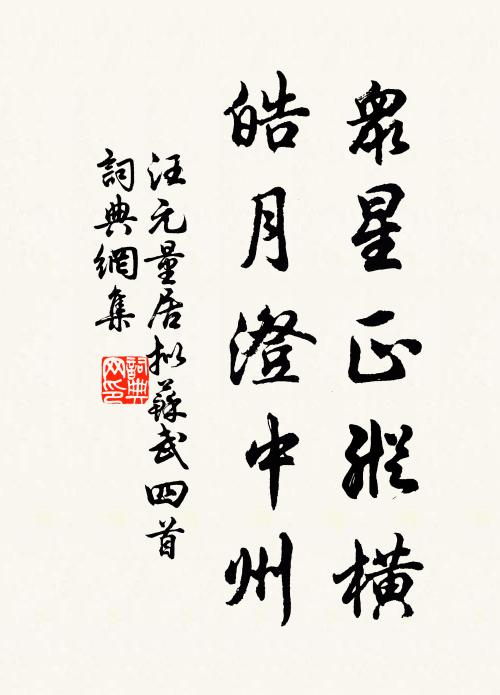 眾星正縱橫
皓月澄中州
汪元量居拟蘇武四首
詞典網集
詞典
网印